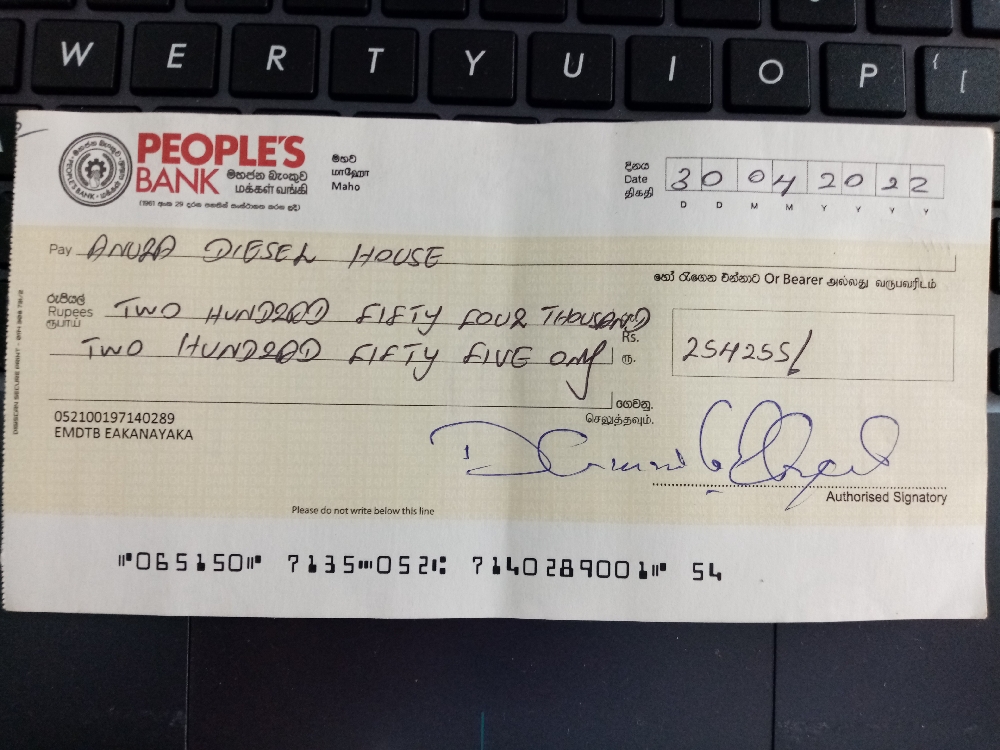 W E R T Y U I O P { [
PEOPLE'S
BANK මහජන බැංකුව
மக்கள் வங்கி
(1961 අංක 29 දරන පනතින් සංස්ථාපනය කරන ලදි)
මහව
மாஹோ
Maho
දිනය
Date
திகதி
30 04 2022
D D M M Y Y Y Y
Pay ANURA DIESEL HOUSE
හෝ රැගෙන එන්නාට Or Bearer அல்லது வருபவரிடம்
රුපියල්
Rupees
ரூபாய்
TWO HUNDRED FIFTY FOUR THOUSAND
රු.
Rs.
ரூ.
254255/
TWO HUNDRED FIFTY FIVE ONLY
ගෙවනු.
செலுத்தவும்.
052100197140289
EMDTB EAKANAYAKA
Authorised Signatory
Please do not write below this line
⑈065150⑈ 7135⑉052⑆ 7140289001⑈ 54